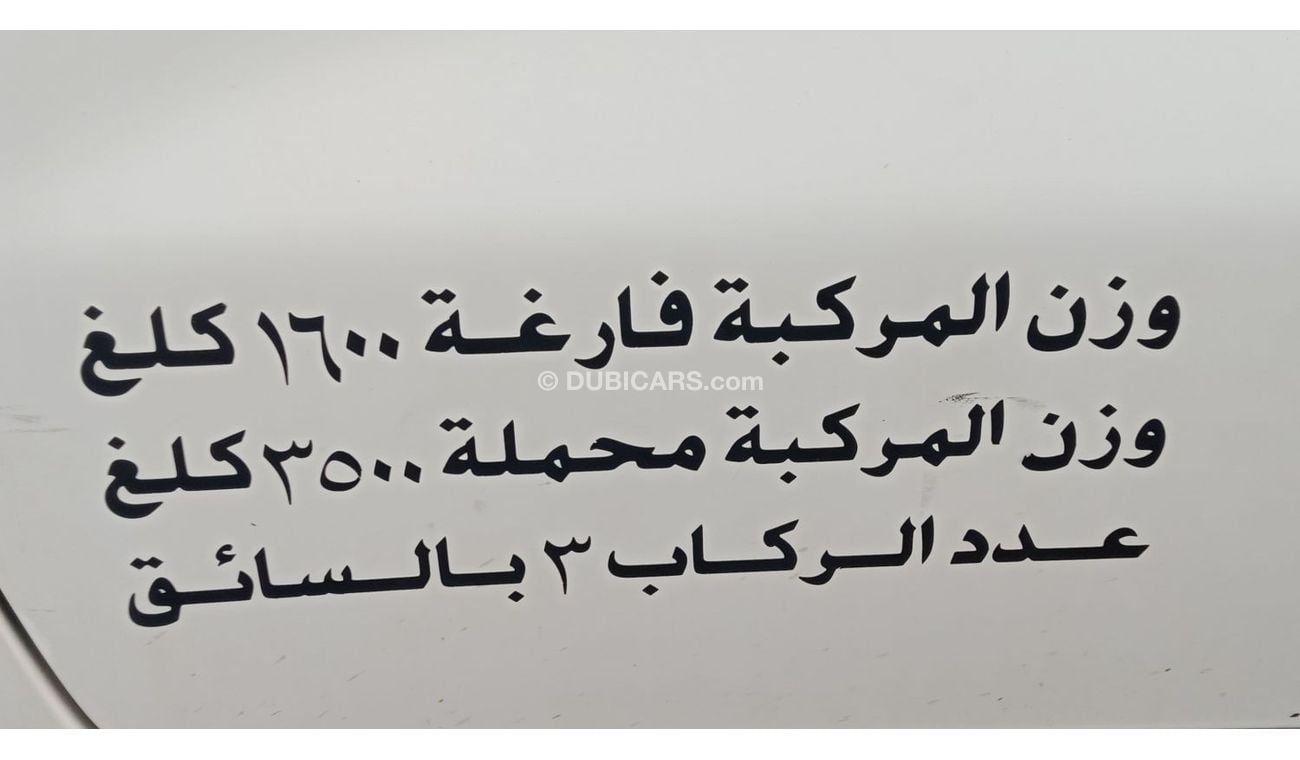 وزن المركبة فارغة ١٦٠٠ كلغ
© DUBICARS.com
وزن المركبة محملة ٣٥٠٠ كلغ
عدد الركاب ٣ بالسائق